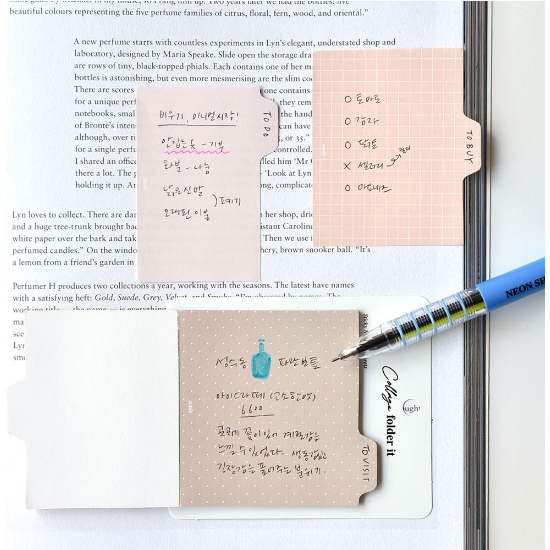 beautiful colours representing the five perfume families of citrus, floral, fern, wood, and oriental."
A new perfume starts with countless experiments in Lyn's elegant, understated shop and
laboratory, designed by Maria Speake. Slide open the storage
are rows of tiny, black-topped phials. Each contains one of her
bottles is astonishing, but even more mesmerising are the slim
There are scores
for a unique perf
notebooks, small
of Brontë's inten
although, over ti
for a single perfu
I shared an office
there a lot. The p
holding it up. An
one contains
they rem
the hand
can have
or 35."
controlled.
lled him 'Mr
'Look at Lyn
long, complicate
TO DO
비우기, 미니멀시작!
안입는옷 - 기부
화분 - 나눔
낡은신발
오래된 이불
폐기
TO BUY
O 토마토
O 감자
O
X 샐러리
O 마요네즈
Lyn loves to collect. There are
her shop, drie
and a huge tree-trunk brought bac
istant Caroline
white paper over the bark and tak
Then we use
perfumed candles." On the window
hery, brown snooker ball. "It's
a lemon from a friend's garden in
Perfumer H produces two collections a year, working with the seasons. The latest have names
with a satisfying heft: Gold, Suede, Grey, Velvet, and Smoke.
성수동 파란보틀
아이스라떼 (고소한맛)
6600
곳곳에 꽃이있어 계절감을
느낄 수 있었다. 생동감있는
긴장감을 풀어주는 분위기.
TO VISIT
Collage folder it
ugh!
NEON SH